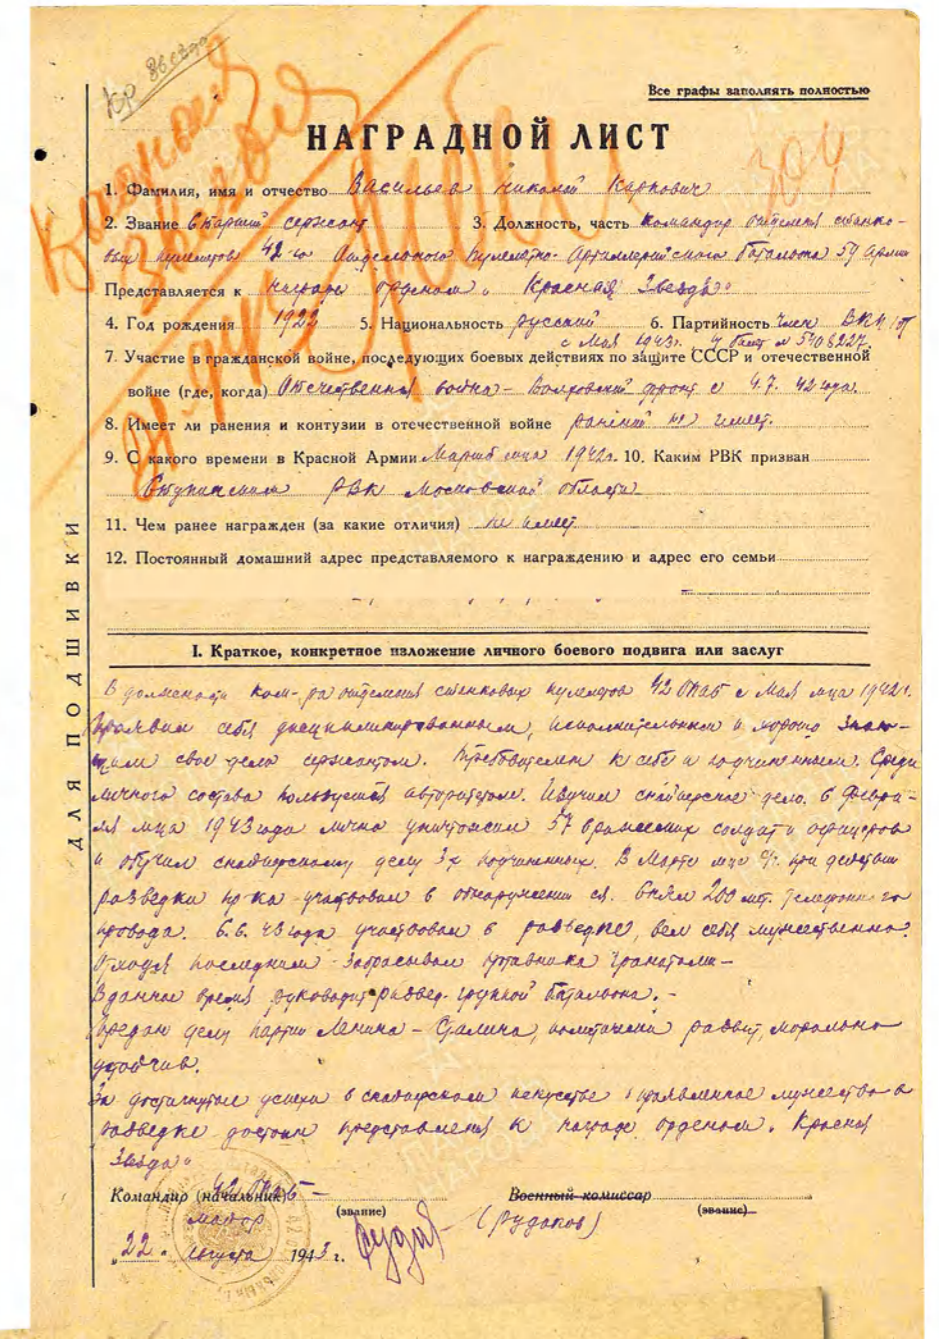 Все графы заполнять полностью
НАГРАДНОЙ ЛИСТ
304
1. Фамилия, имя и отчество Васильев Николай Карпович
2. Звание Старший сержант 3. Должность, часть командир отделения станко-
вых пулеметов 42-го Отдельного Пулеметно-Артиллерийского батальона 59 Армии
Представляется к награде орденом „Красная Звезда"
4. Год рождения 1922 5. Национальность русский 6. Партийность член ВКП/б
с Мая 1943г. ч/билет № 5408227.
7. Участие в гражданской войне, последующих боевых действиях по защите СССР и отечественной
войне (где, когда) Отечественная война – Волховский фронт с 4.7.42 года.
8. Имеет ли ранения и контузии в отечественной войне ранений не имеет.
9. С какого времени в Красной Армии Марта м-ца 1942г. 10. Каким РВК призван
Ступинским РВК Московской области
11. Чем ранее награжден (за какие отличия) не имеет
12. Постоянный домашний адрес представляемого к награждению и адрес его семьи
ДЛЯ ПОДШИВКИ
I. Краткое, конкретное изложение личного боевого подвига или заслуг
В должности ком-ра отделения станковых пулеметов 42 ОПАБ с Мая м-ца 1942г.
Проявил себя дисциплинированным, исполнительным и хорошо знаю-
щим свое дело сержантом. Требователен к себе и подчиненным. Среди
личного состава пользуется авторитетом. Изучил снайперское дело. в Февра-
ля м-ца 1943 года лично уничтожил 57 вражеских солдат и офицеров
и обучил снайперскому делу 3х подчиненных. В Марте м-це при действии
разведки пр-ка участвовал в обнаружении ея. Снял 200 мт. телефонного
провода. 6.6.43 года участвовал в разведке, вел себя мужественно.
Отходя последним – забрасывал противника гранатами –
В данное время руководит развед. группой батальона. –
Предан делу партии Ленина – Сталина, политически развит, морально
устойчив.
За достигнутые успехи в снайперском искусстве и проявленное мужество в
разведке достоин представления к награде орденом „Красная
Звезда"
Командир (начальник) 42 ОПАБ – Военный комиссар
майор (звание) (Рудаков) (звание)
„22" Августа 1943 г.